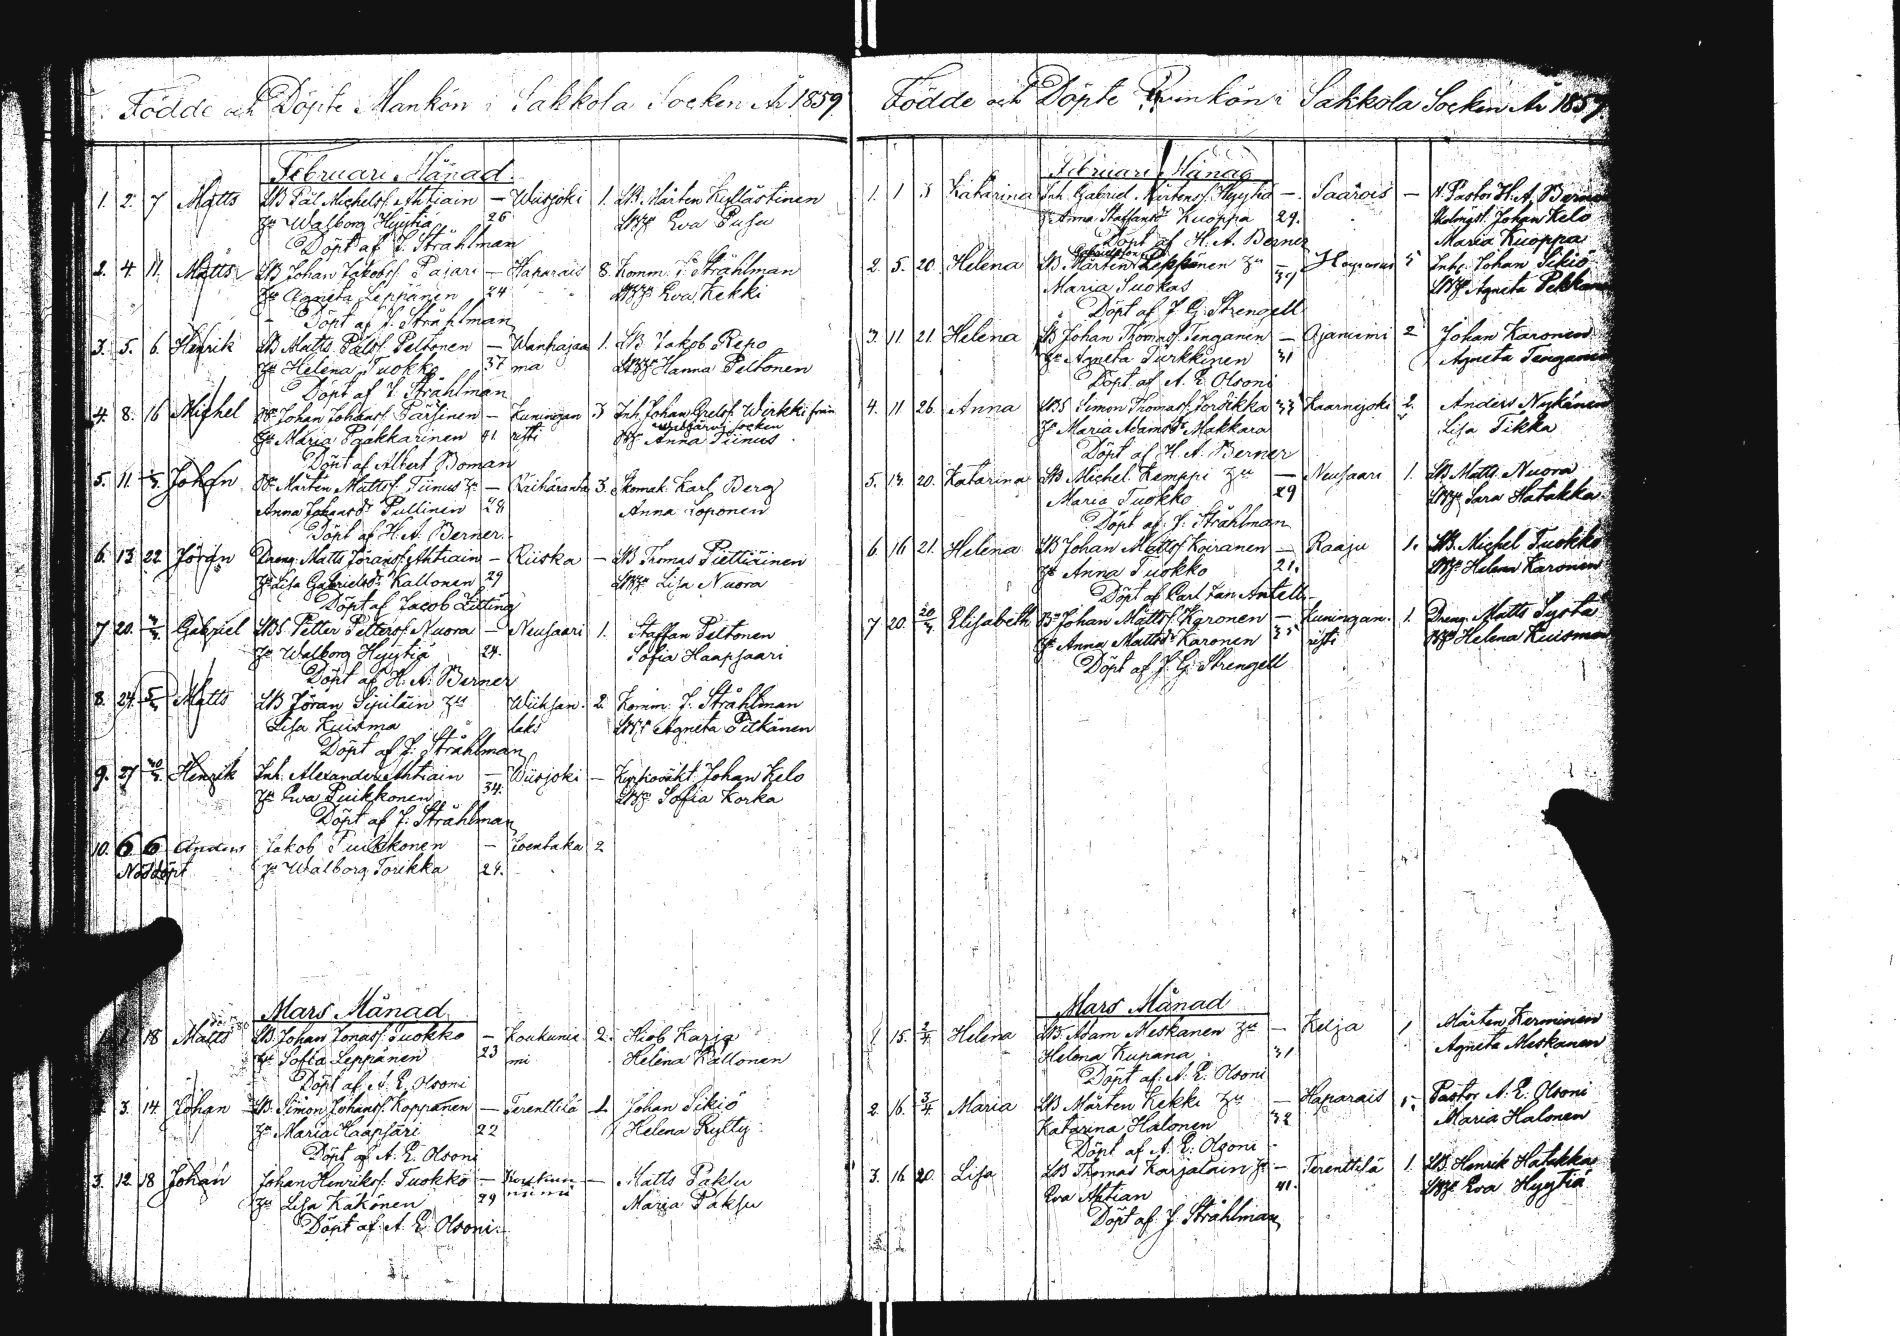 Födde och Döpte Mankön i Sakkola Socken År 1859.
Februari Månad.
1. 2. 7 Matts LB Pål Michelss. Ahtiain — Wiisjoki 1. LB. Mårten Kylläs­tinen
Hu Walborg Hyytiä 26 LBHu Eva Pusu
Döpt af J. Stråhlman
2. 4. 11. Matts LB Johan Jakobss. Pajari — Haparais 8. Komm. J. Stråhlman
Hu Agneta Leppänen 24 LBHu Eva Kekki
Döpt af J. Stråhlman
3. 5. 6. Henrik LB Matts Pålss. Peltonen — Wanhajaa 1. LB Jakob Repo
Hu Helena Tuokko 37 ma LBHu Hanna Peltonen
Döpt af J. Stråhlman
4. 8. 16 Michel Johan Johanss. Pärssinen — Kuningan 3 Inh. Johan Grelss. Wirkki från
Walkjärvi socken
Hu Maria Paakkarinen 41. risti Anna Tiinus
Döpt af Albert Boman
5. 11. Johan Mårten Mattss. Tiinus Hu — Räihäranta 3. Skomak. Karl Berg
Anna Johansdr Pullinen 28 Anna Loponen
Döpt af H. A. Berner.
6. 13 22 Jöran Dreng. Matts Jöranss. Ahtiain — Riiska — LB Thomas Piettiäinen
Hu Lisa Gabrielsdr Kallonen 29 LBHu Lisa Nuora
Döpt af Jacob Zitting
7 20. Gabriel LBS Petter Petterss. Nuora — Neusaari 1. Staffan Peltonen
Hu Walborg Hyytiä 24. Sofia Haapsaari
Döpt af H. A. Berner
8. 24. 5/3 Matts LB Jöran Sipiläin Hu Wiiksan- 2. Komm. J. Stråhlman
Lisa Kuisma laks Agneta Pitkänen
Döpt af J. Stråhlman
9. 27 Henrik Inh. Alexander Ahtiain — Wiisjoki — Kyrkovakt. Johan Kelo
Hu Eva Puikkonen 34. Sofia Korka
Döpt af J. Stråhlman
10. 6 6 Anders Jakob Puikkonen — 2
Nöddöpt Hu Walborg Torikka 24.
Mars Månad
18 Matts LB Johan Jonass. Tuokko — Koukunie 2. Hiob Karja
Hu Sofia Leppänen 23 mi Helena Kallonen
Döpt af A. E. Olsoni
3. 14 Johan LB. Simon Johanss. Koppanen — Terenttilä 1 Johan Sikiö
Hu Maria Haapsari 22 Helena Rytty
Döpt af A. E. Olsoni
3. 12 18 Johan Johan Henrikss. Tuokko — — Matts Paksu
Hu Lisa Käkönen 29 Maria Paksu
Döpt af A. E. Olsoni
Födde och Döpte Qvinkön i Sakkola Socken År 1859.
Februari Månad
1. 1 3 Katarina Inh. Gabriel Mårtenss. Hyytiä — Saarois — H. Pastor H. A. Berner
Hu Anna Staffansdr Kuoppa 29. Johan Kelo
Döpt af H. A. Berner Maria Kuoppa
2. 5. 20. Helena LB. Mårten Leppänen Hu — 5 Inh. Johan Sikiö
Maria Suokas Agneta Pekkanen
Döpt af J. G. Strengell
3. 11 21. Helena LB Johan Thomass. Tenganen — Ojaniemi 2 Johan Karonen
Hu Agneta Turkkinen 31 Agneta Tenganen
Döpt af A. E. Olsoni
4. 11 26. Anna LBS Simon Thomass. Torikka 33 Kaarnajoki 2. Anders Nykänen
Hu Maria Adamsdr Makkara Lisa Tikka
Döpt af H. A. Berner
5. 20. Katarina LB Michel Kemppi Hu — Neusaari 1. LB Matts Nuora
Maria Tuokko 29 LBHu Sara Hatakka
Döpt af J. Stråhlman
6. 16 21. Helena LB Johan Mattss. Koiranen — Raaju 1. LB. Michel Tuokko
Hu Anna Tuokko 21. LBHu Helena Karonen
Döpt af Carl Jan. Antell
7 20. 20/3 Elisabeth Johan Mattss. Karonen — Kuningan- 1. Dreng. Matts Sysiä
Hu Anna Mattsdr Karonen risti Helena Kuisman
Döpt af J. G. Strengell
Mars Månad
1 15. 2/4 Helena LB. Adam Meskanen Hu — Kelja 1 Mårten Kerminen
Helena Kupana 31 Agneta Meskanen
Döpt af: A. E. Olsoni
2. 16. 3/4 Maria LB Mårten Kekki Hu — Haparais Pastor A. E. Olsoni
Katarina Halonen 32 Maria Halonen
Döpt af A. E. Olsoni
3. 16 20. Lisa LB Thomas Karjalain Hu — Terenttilä 1. LB. Henrik Hatakka
Eva Ahtian 41. LBHu Eva Hyytiä
Döpt af J. Stråhlman